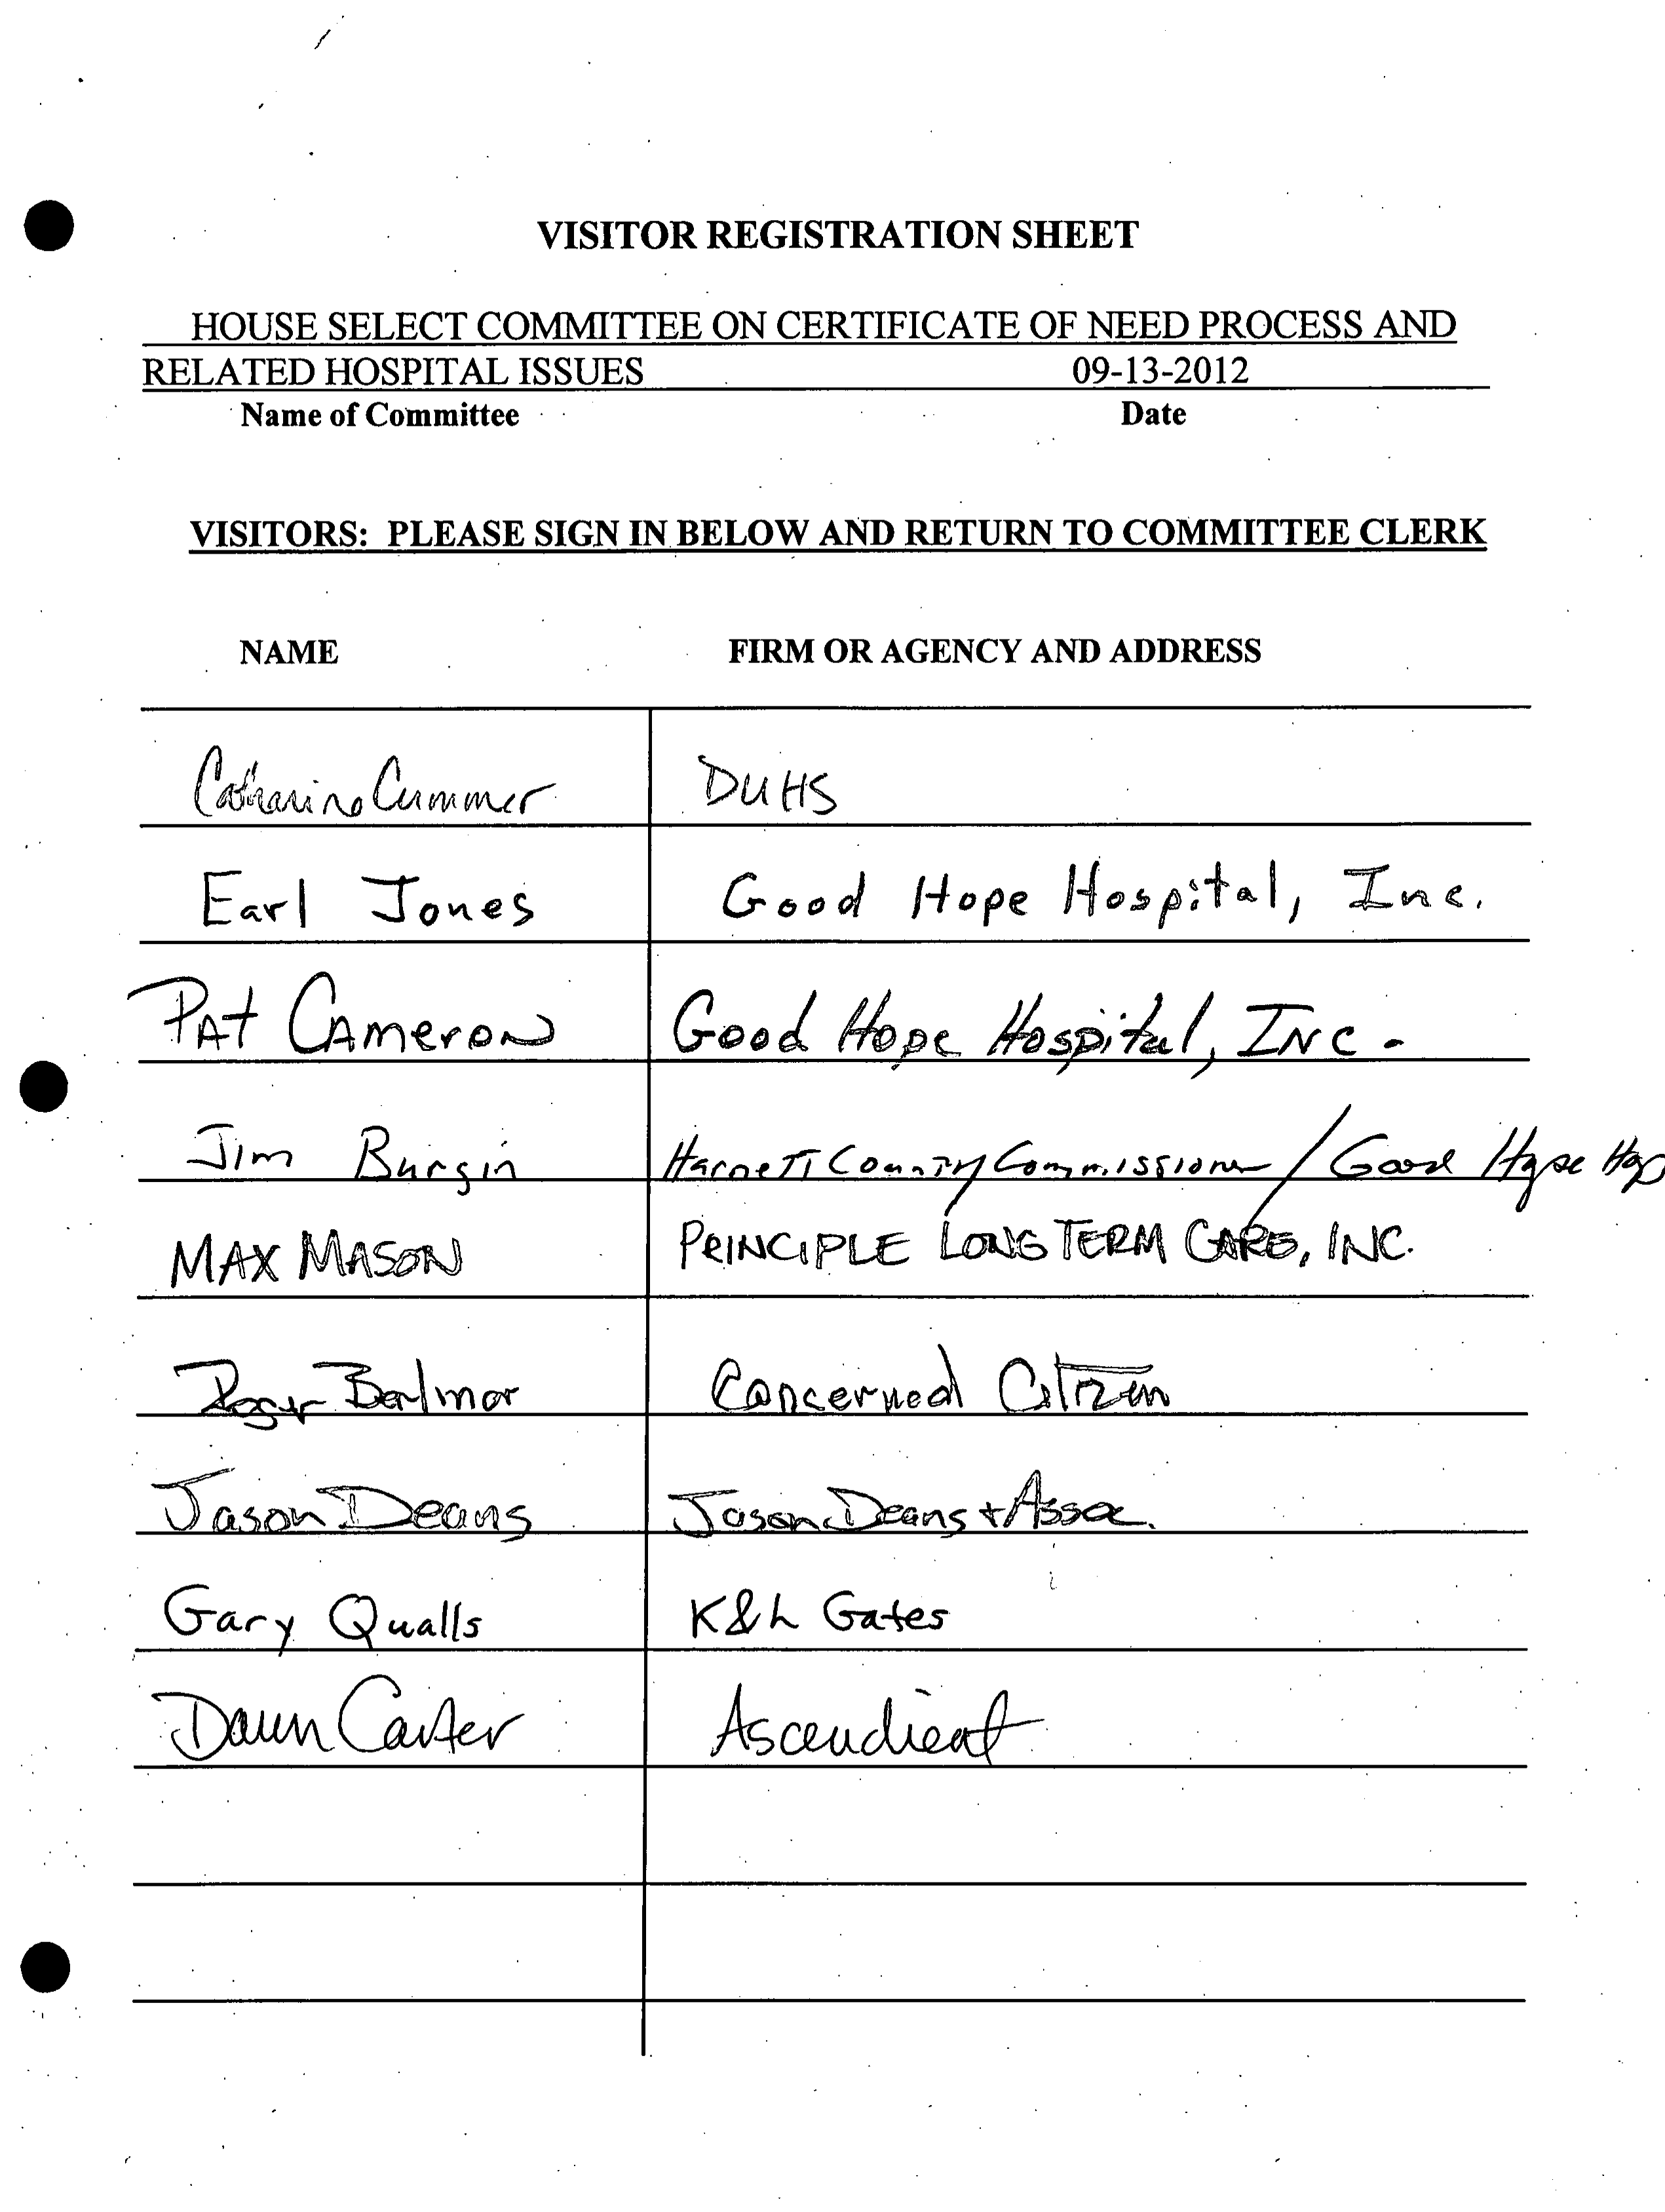 VISITOR REGISTRATION SHEET
HOUSE SELECT COMMITTEE ON CERTIFICATE OF NEED PROCESS AND
RELATED HOSPITAL ISSUES 09-13-2012
Name of Committee Date
VISITORS: PLEASE SIGN IN BELOW AND RETURN TO COMMITTEE CLERK
NAME FIRM OR AGENCY AND ADDRESS
Catharine Cummer DUHS
Earl Jones Good Hope Hospital, Inc.
PAT CAMERON Good Hope Hospital, INC.
Jim Burgin Harnett County Commissioner / Good Hope Hosp
MAX MASON PRINCIPLE LONG TERM CARE, INC.
Roger Concerned Citizen
Jason Deans Jason Deans + Assoc.
Gary Qualls K&L Gates
Dawn Carter Ascendient